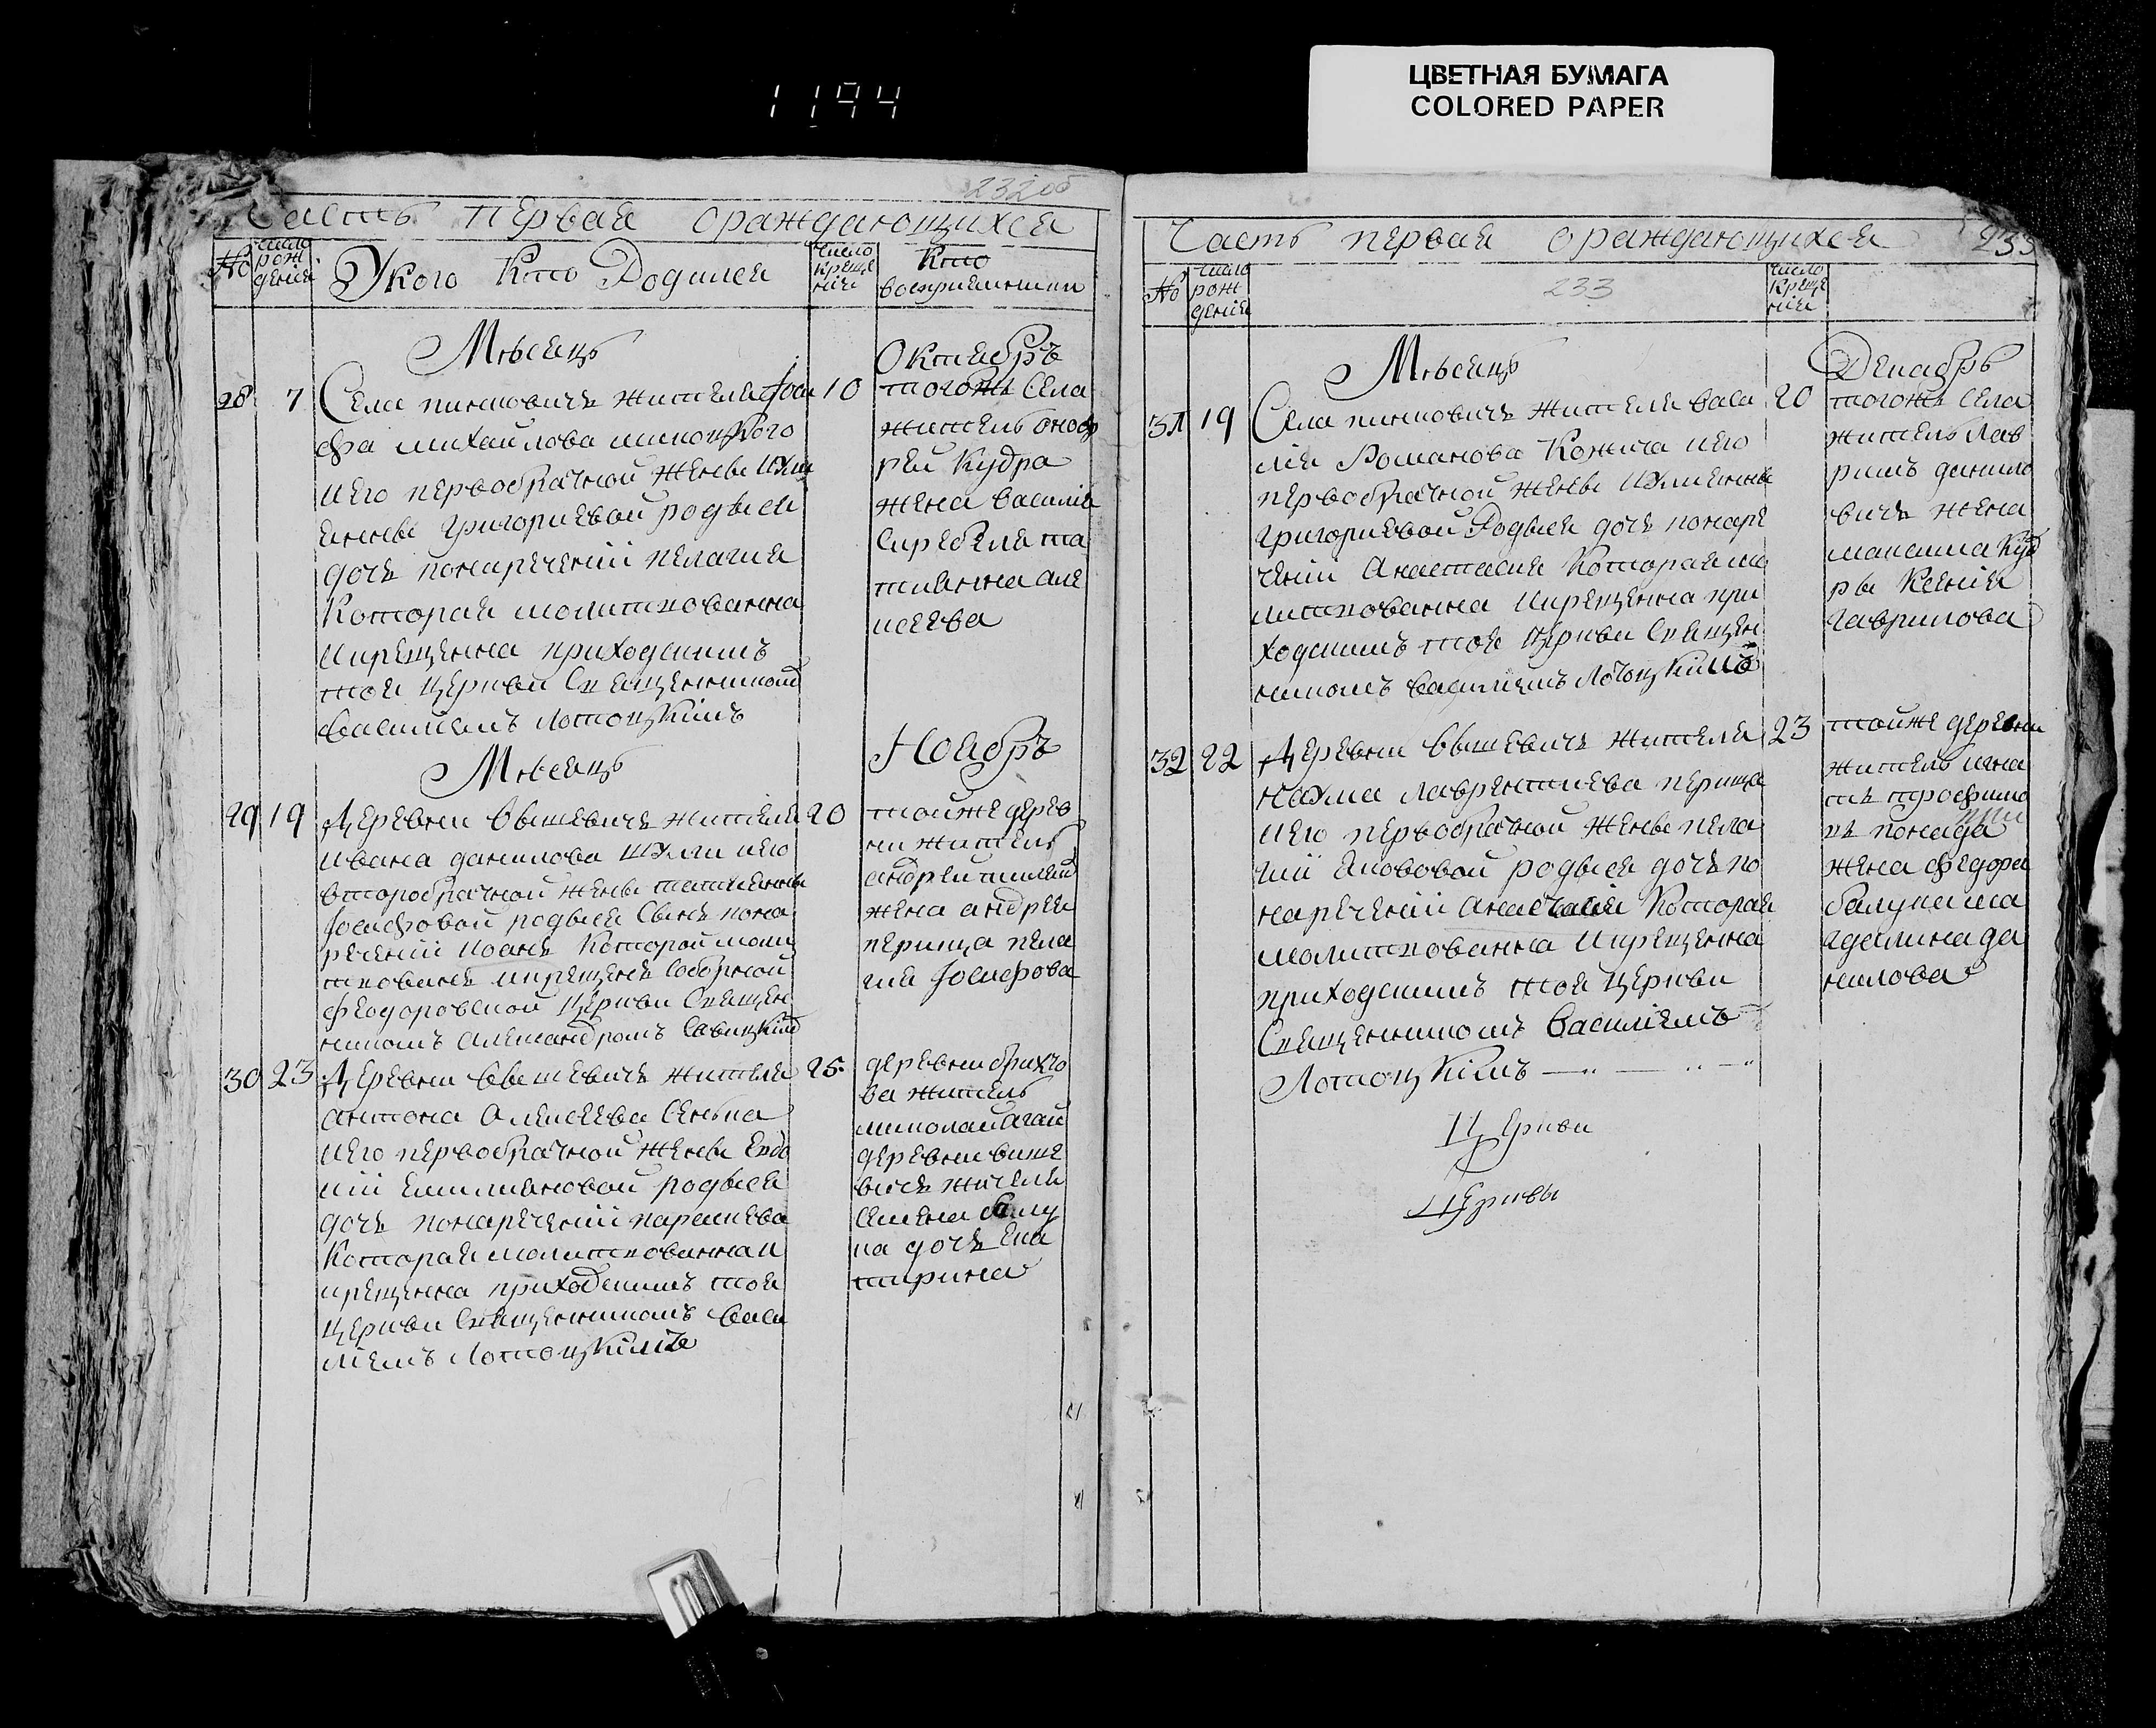 1194
ЦВЕТНАЯ БУМАГА
COLORED PAPER
232 об
Часть первая ораждающихся
№
число рож дения
У кого Кто Родился
число креще нiя
Кто восприемники
Месяцъ Октябрь
28 7 Села пинковичъ жителя Iоси 10
фа михайлова
иего первобрачной жены Юли
янны григориевой родися
дочъ понаречении пелагия
Которая молитвованна
икрещенна приходскимъ
тоя церкви Священником
Василиемъ Лотоцкимъ
тогожъ Села
житель оноф
рей Кудра
жена Василия
та
тиянна але
ксеева
Месяцъ Ноябрь
29 19 Деревни Вышевичъ жителя 20
Ивана данилова иего
второбрачной жены татиянны
Iосифовой родися Сынъ пона
речении Иоанъ Которой моли
твованъ икрещенъ Соборной
феодоровской Церкви Священ
никомъ Александромъ Савицким
тойже дерев
ни житель
андрей
жена андрея
перица пела
гия Iосифова
30 23 Деревни Вышевичъ жителя 25
антона Алексеева
иего первобрачной жены Евдо
кии Емилияновой родися
дочъ понаречении параскева
Которая молитвованна и
крещенна приходскимъ тоя
Церкви Священникомъ Васи
лiемъ Лотоцкимъ
деревни
ва житель
николай
деревни више
вичъ жителя
Семена балу
ка дочъ Ека
тирина
Часть первая ораждающихся
233
233
№
число рож дения
число креще нiя
Месяцъ Декабрь
31 19 Села пинковичъ жителя Васи 20
лия Романова иего
первобрачной жены Юлиянны
григориевой Родися дочъ понаре
чении Анастасия Которая мо
литвованна икрещенна при
ходскимъ тоя Церкви Священ
никомъ Василиемъ Лотоцкимъ
тогожъ Села
житель Лав
ринъ данило
вичъ жена
максима Куд
ры Ксения
гаврилова
32 22 Деревни Вышевичъ жителя 23
Наума лаврентиева перица
иего первобрачной жены пела
гии Яковой родися дочъ по
наречении анастасия Которая
молитвованна икрещенна
приходскимъ тоя Церкви
Священникомъ Василиемъ
Лотоцкiмъ
тойже деревни
житель игна
тъ трофимо
жена федора
балуки
даниилова
Церкви
Церквы